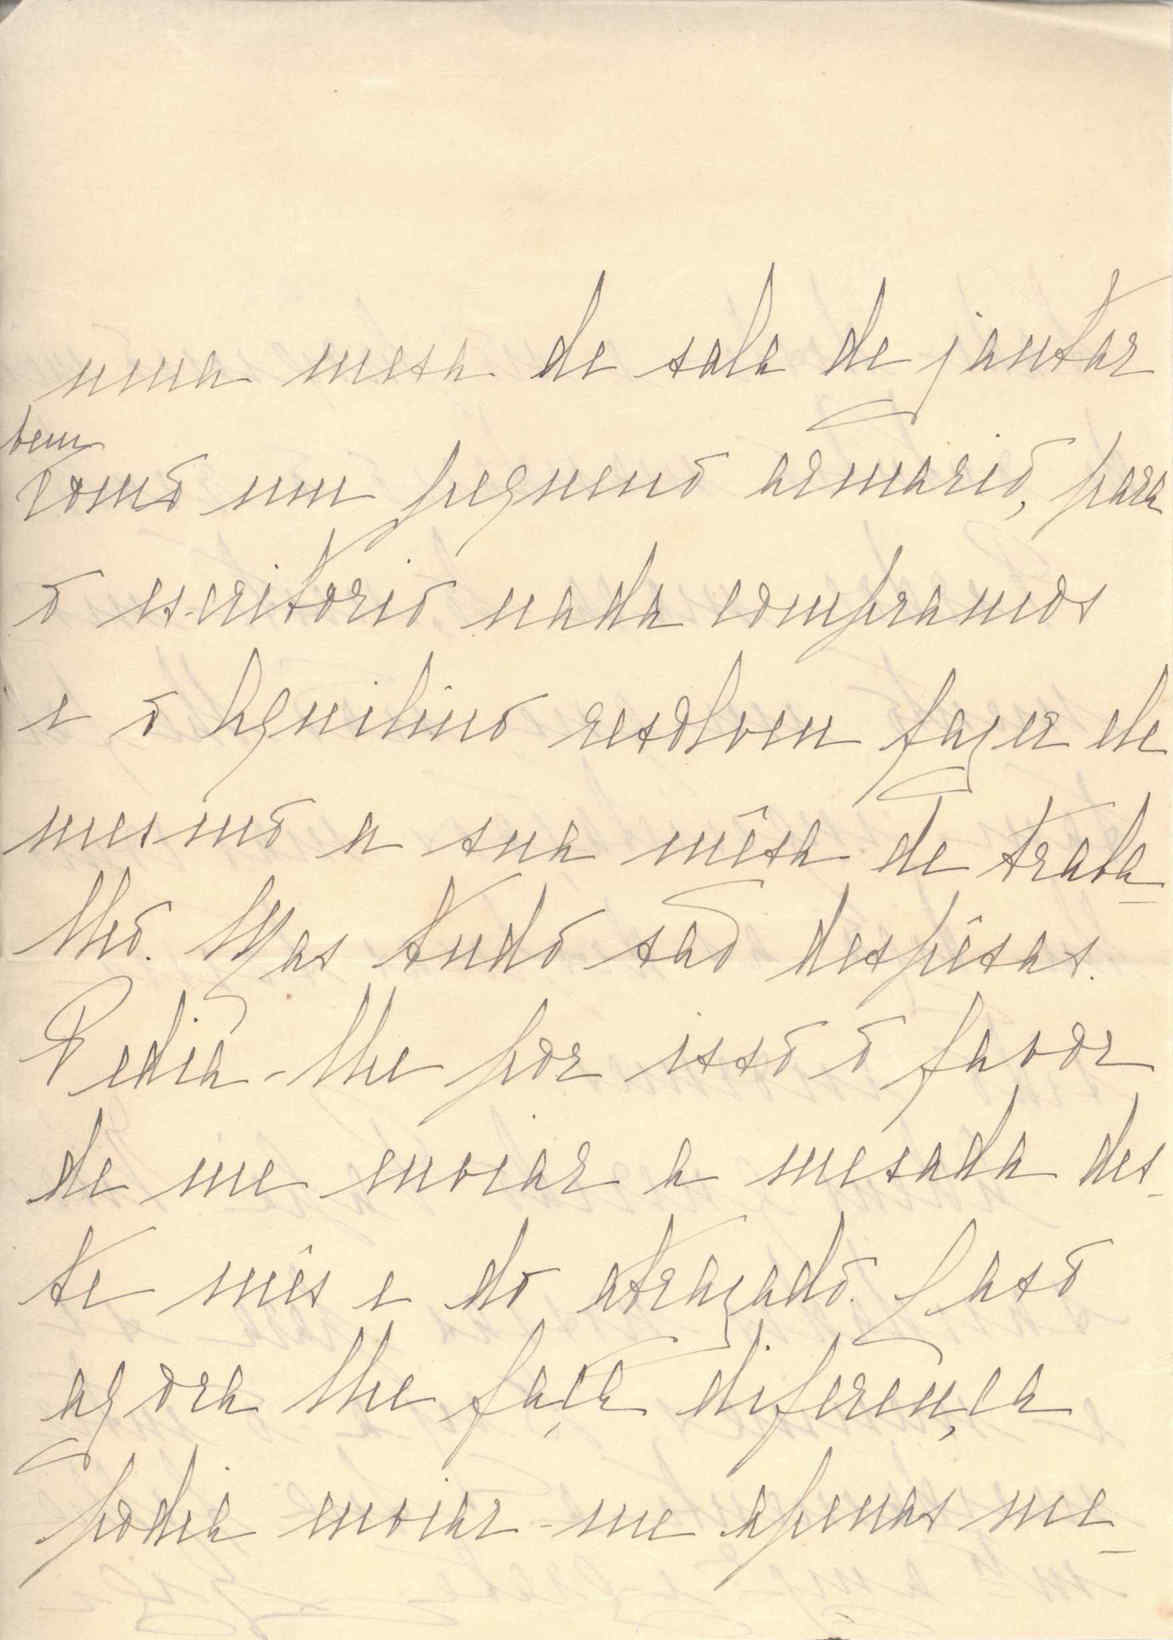 uma mesa de sala de jantar
bem
como um pequeno armario, para
o escritorio nada compramos
e o Aquilino resolveu fazer ele
mesmo a sua mêsa de traba
lho. Mas tudo são despêsas.
Pedia-lhe por isso o favor
de me enviar a mesada des-
te mês e do atrazado. Caso
agora lhe faça diferença
podia enviar-me apenas me-